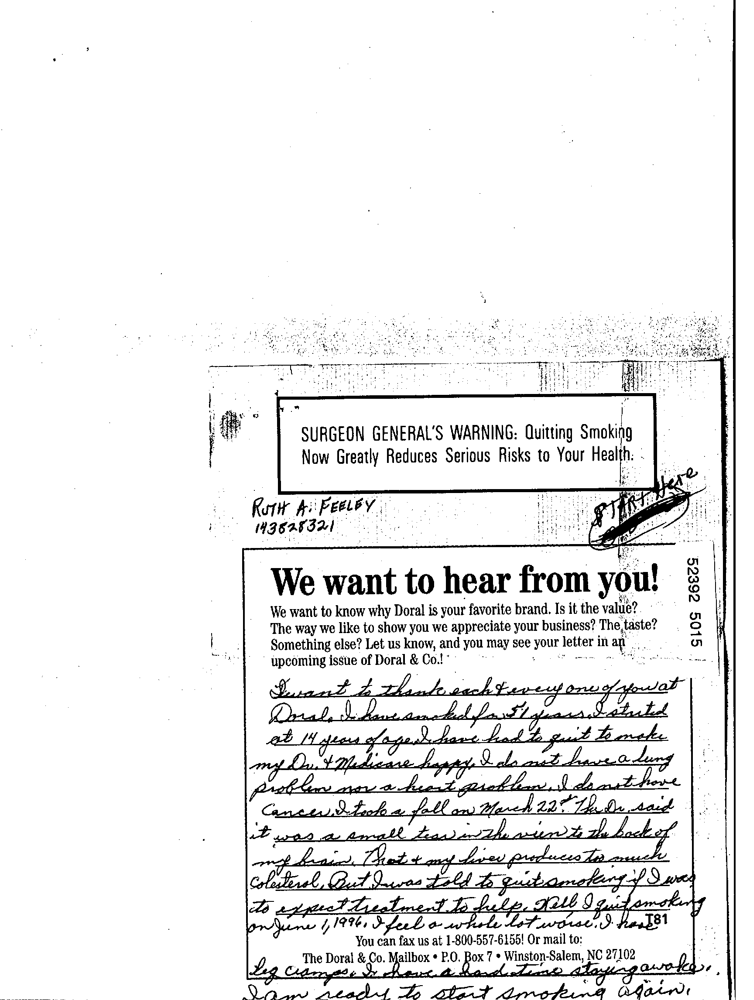 SURGEON GENERAL'S WARNING: Quitting Smoking
Now Greatly Reduces Serious Risks to Your Health.
START Here
RUTH A. FEELEY
143628321
We want to hear from you!
We want to know why Doral is your favorite brand. Is it the value?
The way we like to show you we appreciate your business? The taste?
Something else? Let us know, and you may see your letter in an
upcoming issue of Doral & Co.!
52392 5015
I want to thank each & every one of you at
Doral. I have smoked for 51 years. I started
at 14 years of age. I have had to quit to make
my Dr. & Medicare happy. I do not have a lung
problem nor a heart problem. I do not have
Cancer. I took a fall on March 22nd. The Dr. said
it was a small tear in the vien to the back of
my brain. That & my liver produces to much
Colesterol. But I was told to quit smoking if I was
to expect treatment to help. Well I quit smoking
on June 1, 1996. I feel a whole lot worse. I have
T81
You can fax us at 1-800-557-6155! Or mail to:
The Doral & Co. Mailbox • P.O. Box 7 • Winston-Salem, NC 27102
leg cramps. I have a hard time staying awake.
I am ready to start smoking again.